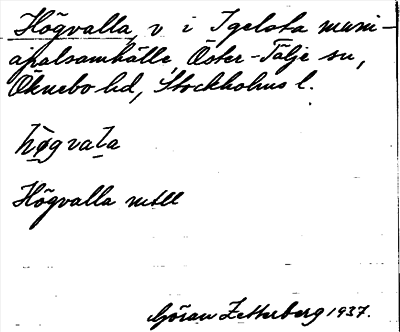 Högvalla, v. i Igelsta muni-
cipalsamhälle Öster-Tälje sn,
Öknebo hd, Stockholms l.
høgvala
Högvalla mtll
Göran Zetterberg 1937.